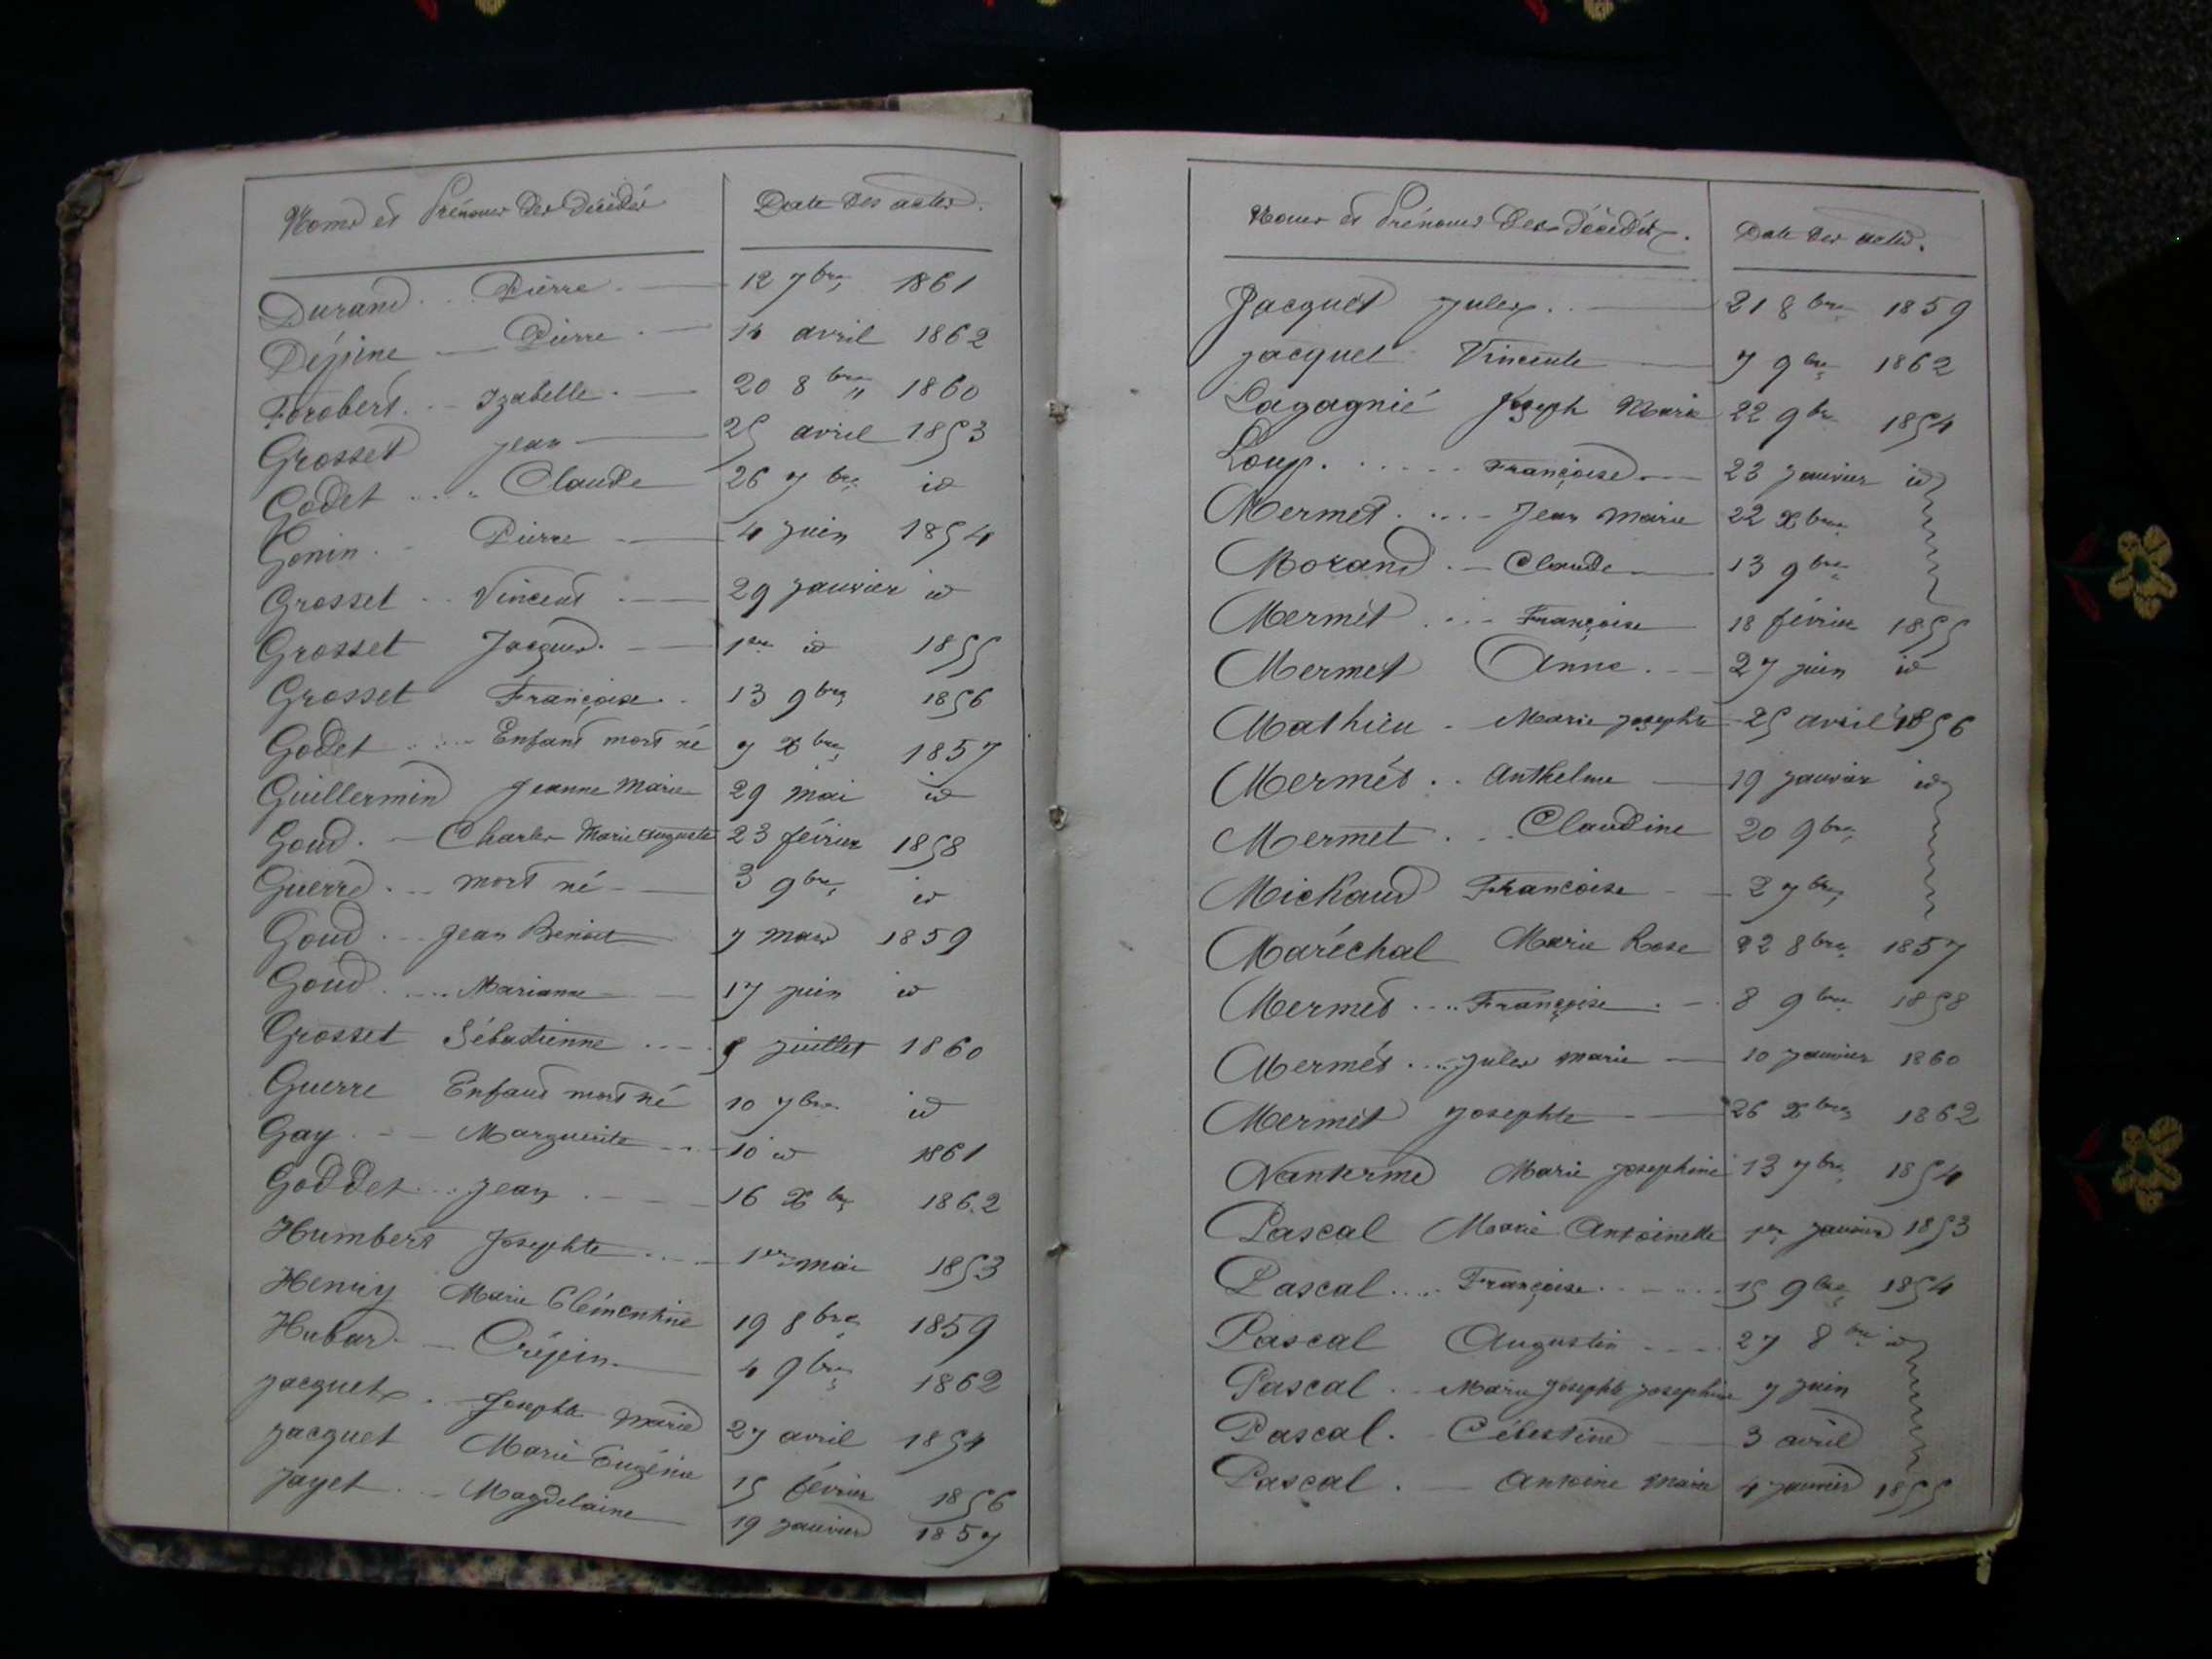 Noms et Prénoms des décédés Date des actes.
Durand Pierre 12 7bre 1861
Dépine Pierre 14 avril 1862
Forobert Izabelle 20 8bre 1860
Grosset Jean 25 avril 1853
Godet Claude 26 7bre id
Gonin Pierre 4 juin 1854
Grosset Vincent 29 janvier id
Grosset Jacques 1er id 1855
Grosset Françoise 13 9bre 1856
Godet Enfant mort né 7 Xbre 1857
Guillermin Jeanne Marie 29 mai id
Goud Charles Marie Auguste 23 février 1858
Guerre mort né 3 9bre id
Goud Jean Benoit 7 mars 1859
Goud Marianne 17 juin id
Grosset Sébastienne 5 juillet 1860
Guerre Enfant mort né 10 7bre id
Gay Marguerite 10 id 1861
Goddet Jean 16 Xbre 1862
Humbert Josephte 1er mai 1853
Henry Marie Clémentine 19 8bre 1859
Hubard Crépin 4 9bre 1862
Jacquet Josephte Marie 27 avril 1854
Jacquet Marie Eugénie 15 février 1856
Jayet Magdelaine 19 janvier 1857
Noms et Prénoms des décédés. Date des actes.
Jacquet Jules 21 8bre 1859
Jacquet Vincente 7 9bre 1862
Lagagnié Joseph Marie 22 9bre 1854
Loup Françoise 23 janvier id
Mermet Jean Marie 22 Xbre
Morand Claude 13 9bre
Mermet Françoise 18 février 1855
Mermet Anne 27 juin id
Mathieu Marie Josephte 25 avril 1856
Mermet Anthelme 19 janvier id
Mermet Claudine 20 9bre
Michaud Françoise 2 7bre
Maréchal Marie Rose 22 8bre 1857
Mermet Françoise 8 9bre 1858
Mermet Jules Marie 10 janvier 1860
Mermet Josephte 26 Xbre 1862
Nanterme Marie Josephine 13 7bre 1854
Pascal Marie Antoinette 1er janvier 1853
Pascal Françoise 15 9bre 1854
Pascal Augustin 27 8bre id
Pascal Marie Josephte Josephine 7 juin
Pascal Célestine 3 avril
Pascal Antoine Marie 4 janvier 1855